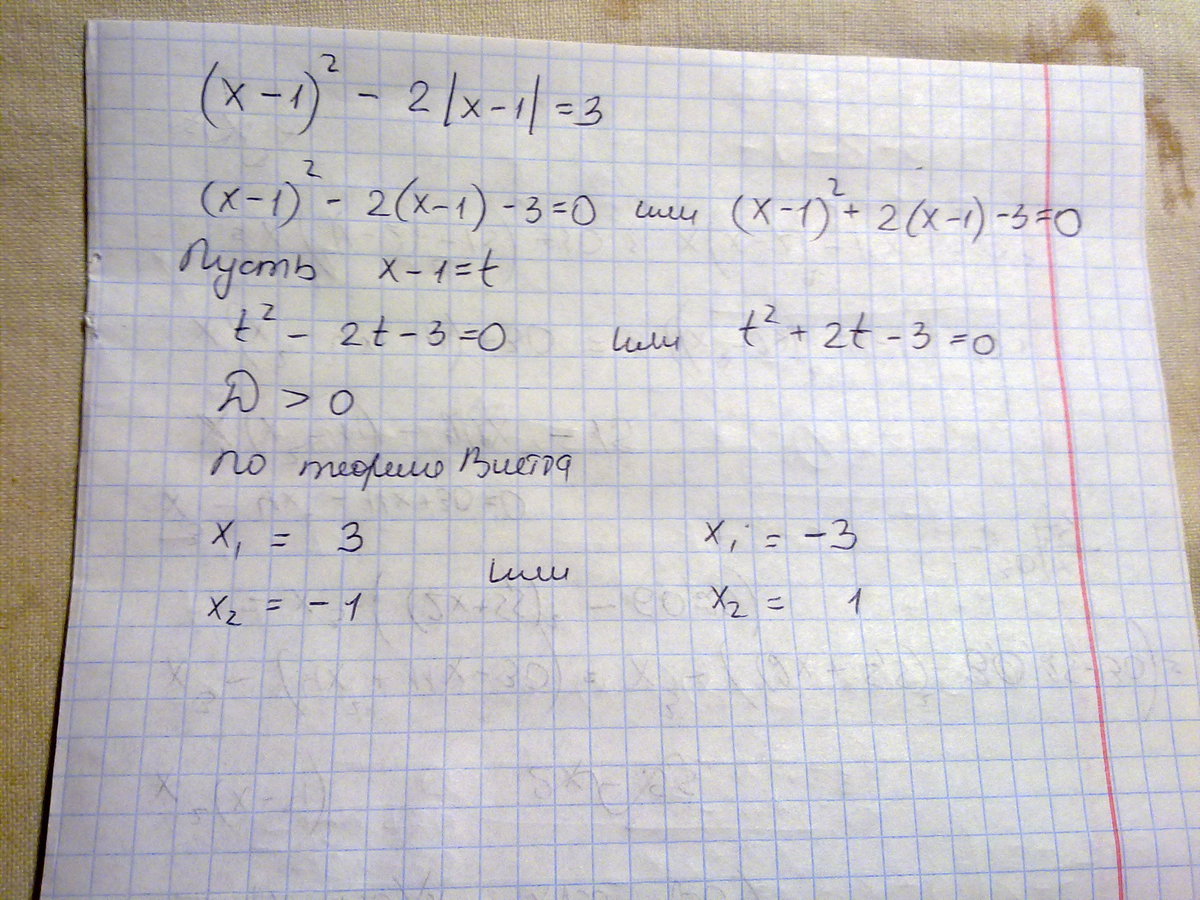 (x-1)² - 2|x-1| = 3
(x-1)² - 2(x-1) - 3 = 0 или (x-1)² + 2(x-1) - 3 = 0
Пусть x-1=t
t² - 2t - 3 = 0 или t² + 2t - 3 = 0
D > 0
по теореме Виета
x₁ = 3 x₁ = -3
или
x₂ = -1 x₂ = 1